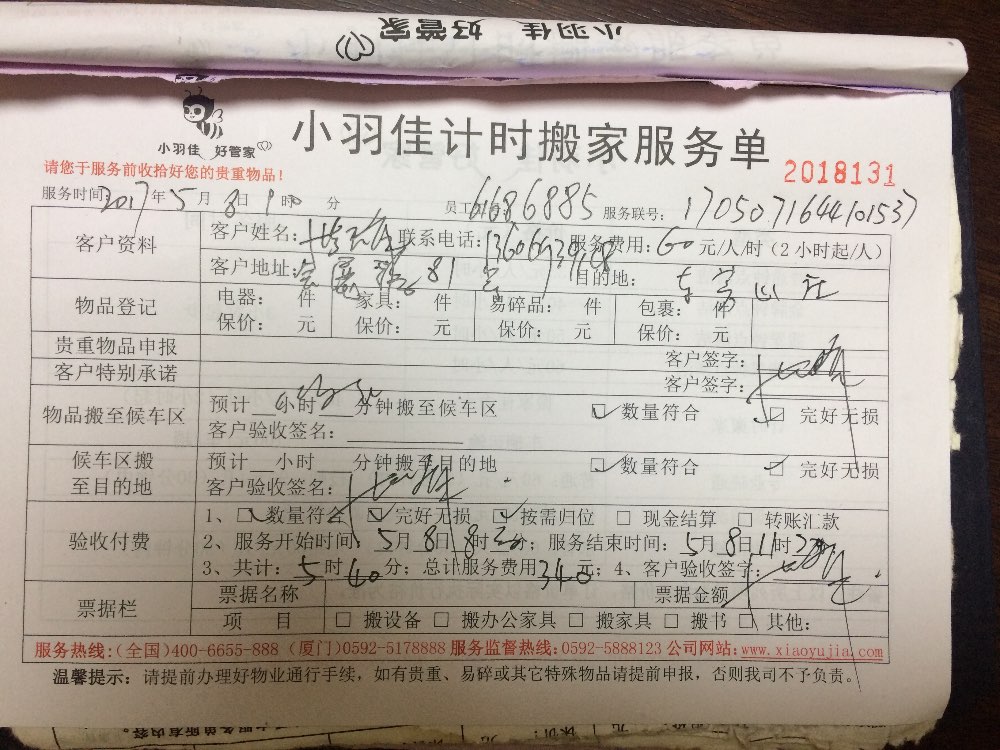 小羽佳 好管家
小羽佳 好管家
小羽佳计时搬家服务单
请您于服务前收拾好您的贵重物品！
2018131
服务时间：2017年5月8日 时 分 员工 6686885 服务联号：1705071644101537
客户资料 客户姓名： 联系电话： 服务费用：60元/人/时（2小时起/人）
客户地址： 81 目的地：
物品登记 电器： 件 家具： 件 易碎品： 件 包裹： 件
保价： 元 保价： 元 保价： 元 保价： 元
贵重物品申报 客户签字：
客户特别承诺 客户签字：
物品搬至候车区 预计 小时 分钟搬至候车区 ☑ 数量符合 ☑ 完好无损
客户验收签名：
候车区搬至目的地 预计 小时 分钟搬至目的地 ☑ 数量符合 ☑ 完好无损
客户验收签名：
验收付费 1、☑ 数量符合 ☑ 完好无损 ☑ 按需归位 □ 现金结算 □ 转账汇款
2、服务开始时间：5月8日8时 分；服务结束时间：5月8日11时
3、共计：5时40分；总计服务费用340元；4、客户验收签字：
票据栏 票据名称 票据金额
项 目 □ 搬设备 □ 搬办公家具 □ 搬家具 □ 搬书 □ 其他：
服务热线：（全国）400-6655-888（厦门）0592-5178888 服务监督热线：0592-5888123 公司网站：www.xiaoyujia.com
温馨提示：请提前办理好物业通行手续，如有贵重、易碎或其它特殊物品请提前申报，否则我司不予负责。